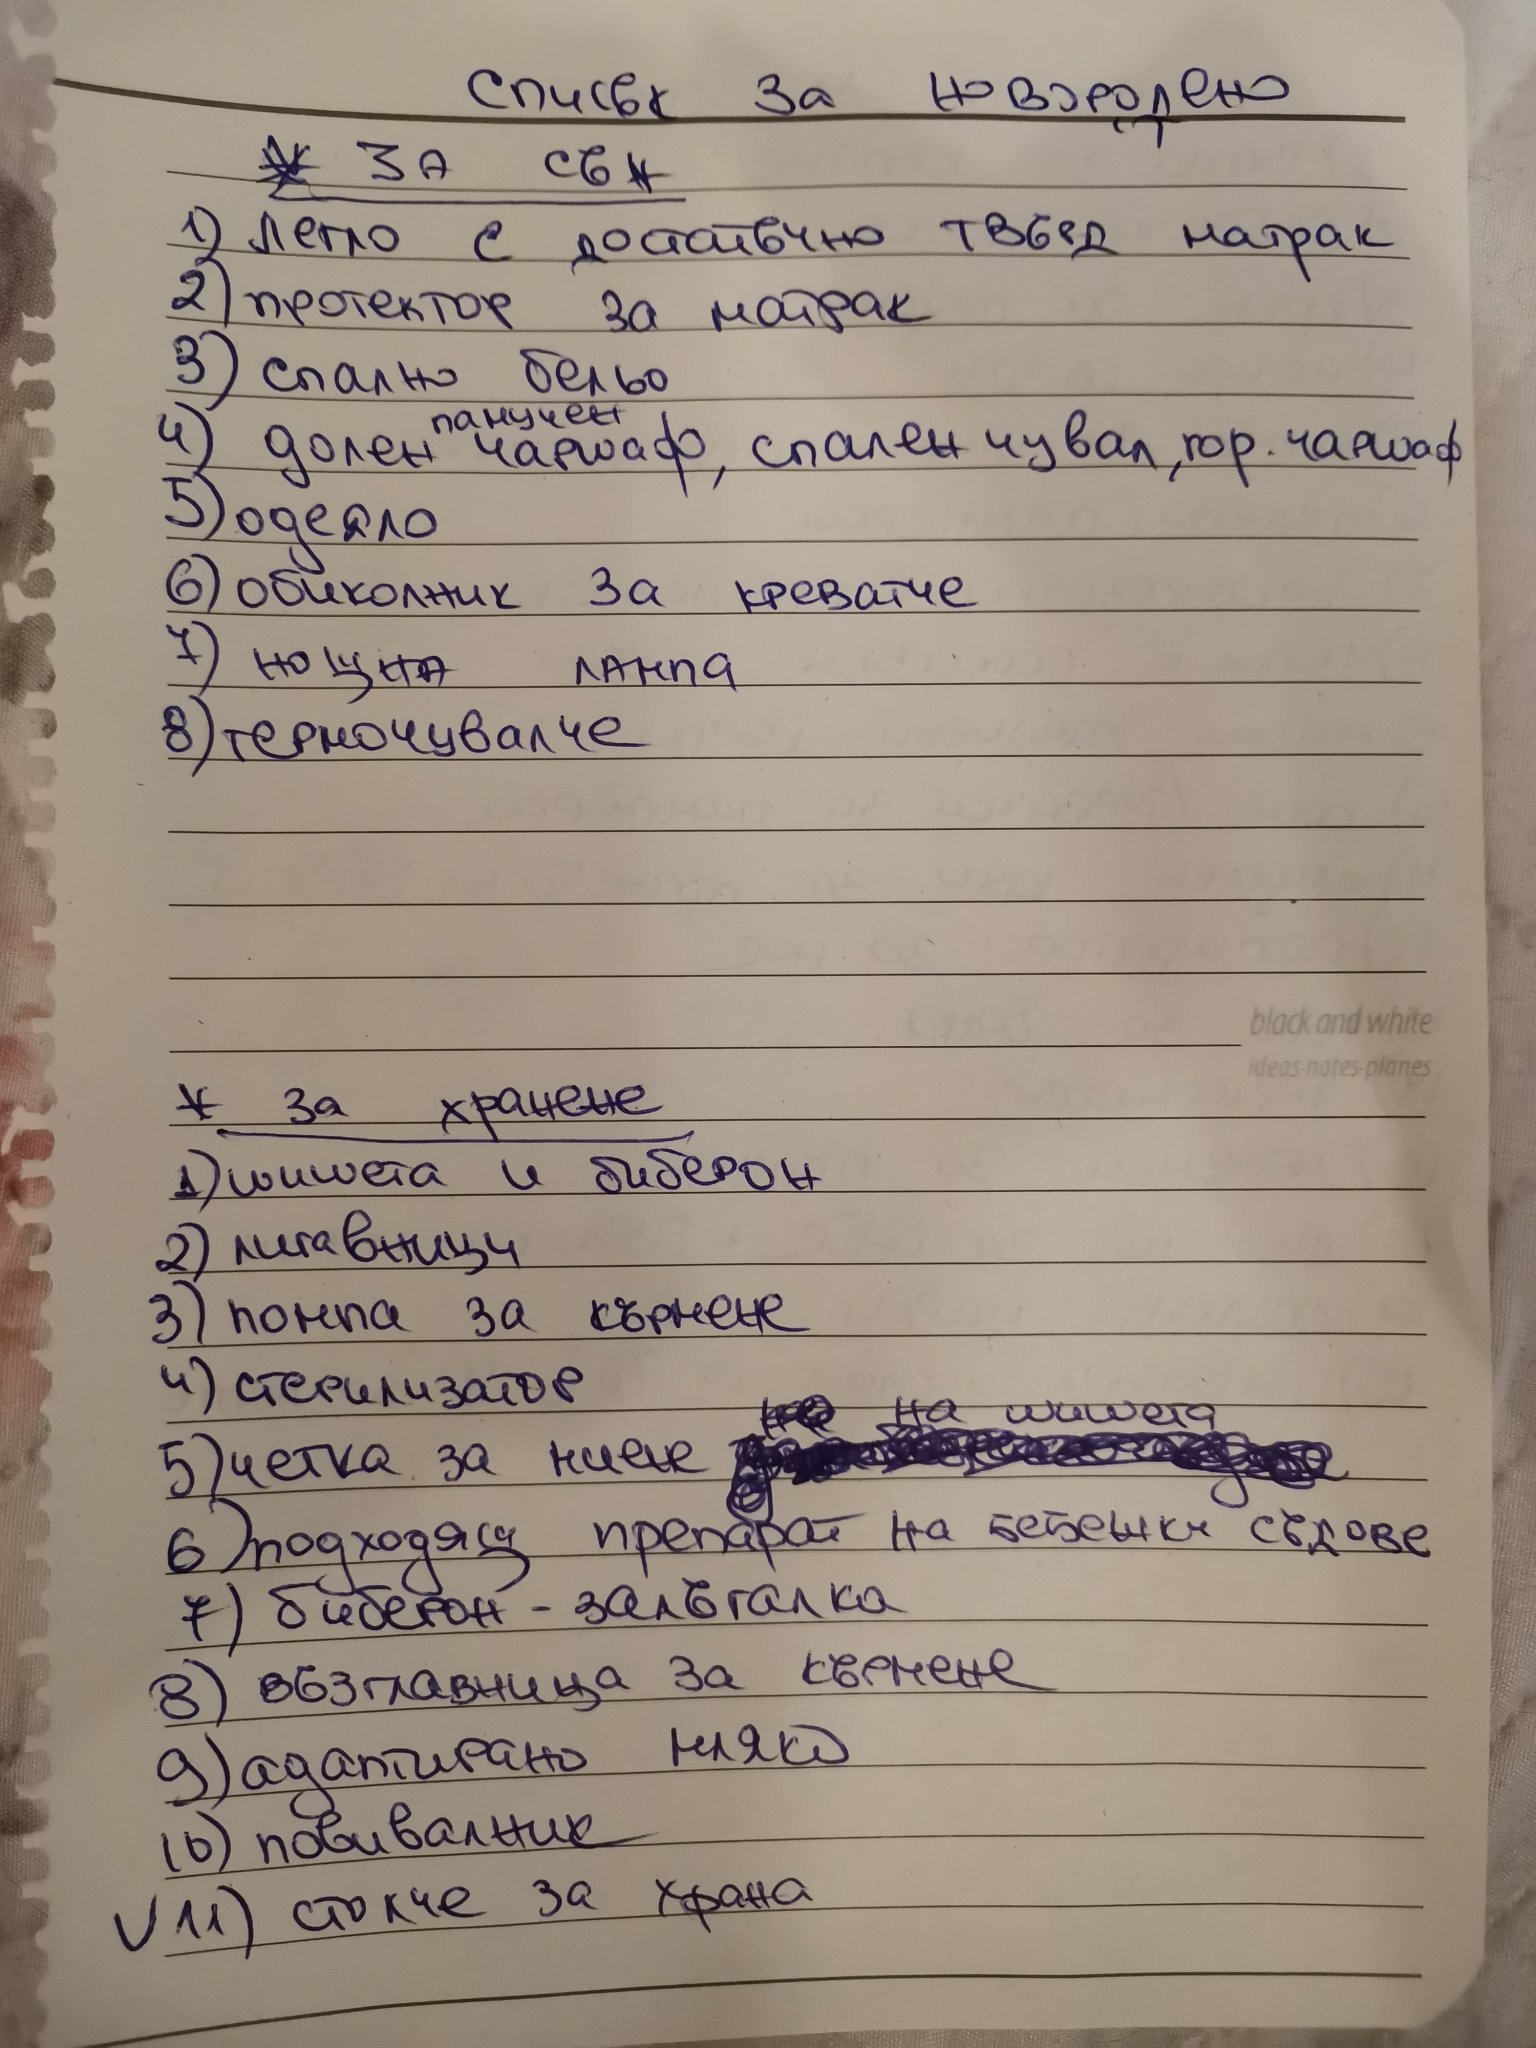 Списък за новородено
* ЗА СЪН
1) легло с достатъчно твърд матрак
2) протектор за матрак
3) спално бельо
памучен
4) долен чаршаф, спален чувал, гор. чаршаф
5) одеяло
6) обиколник за креватче
7) нощна лампа
8) термочувалче
black and white
ideas-notes-planes
* за хранене
1) шишета и биберон
2) лигавници
3) помпа за кърмене
4) стерилизатор
на шишета
5) четка за миене
6) подходящ препарат на бебешки съдове
7) биберон - залъгалка
8) възглавница за кърмене
9) адаптирано мляко
10) повивалник
V 11) столче за храна